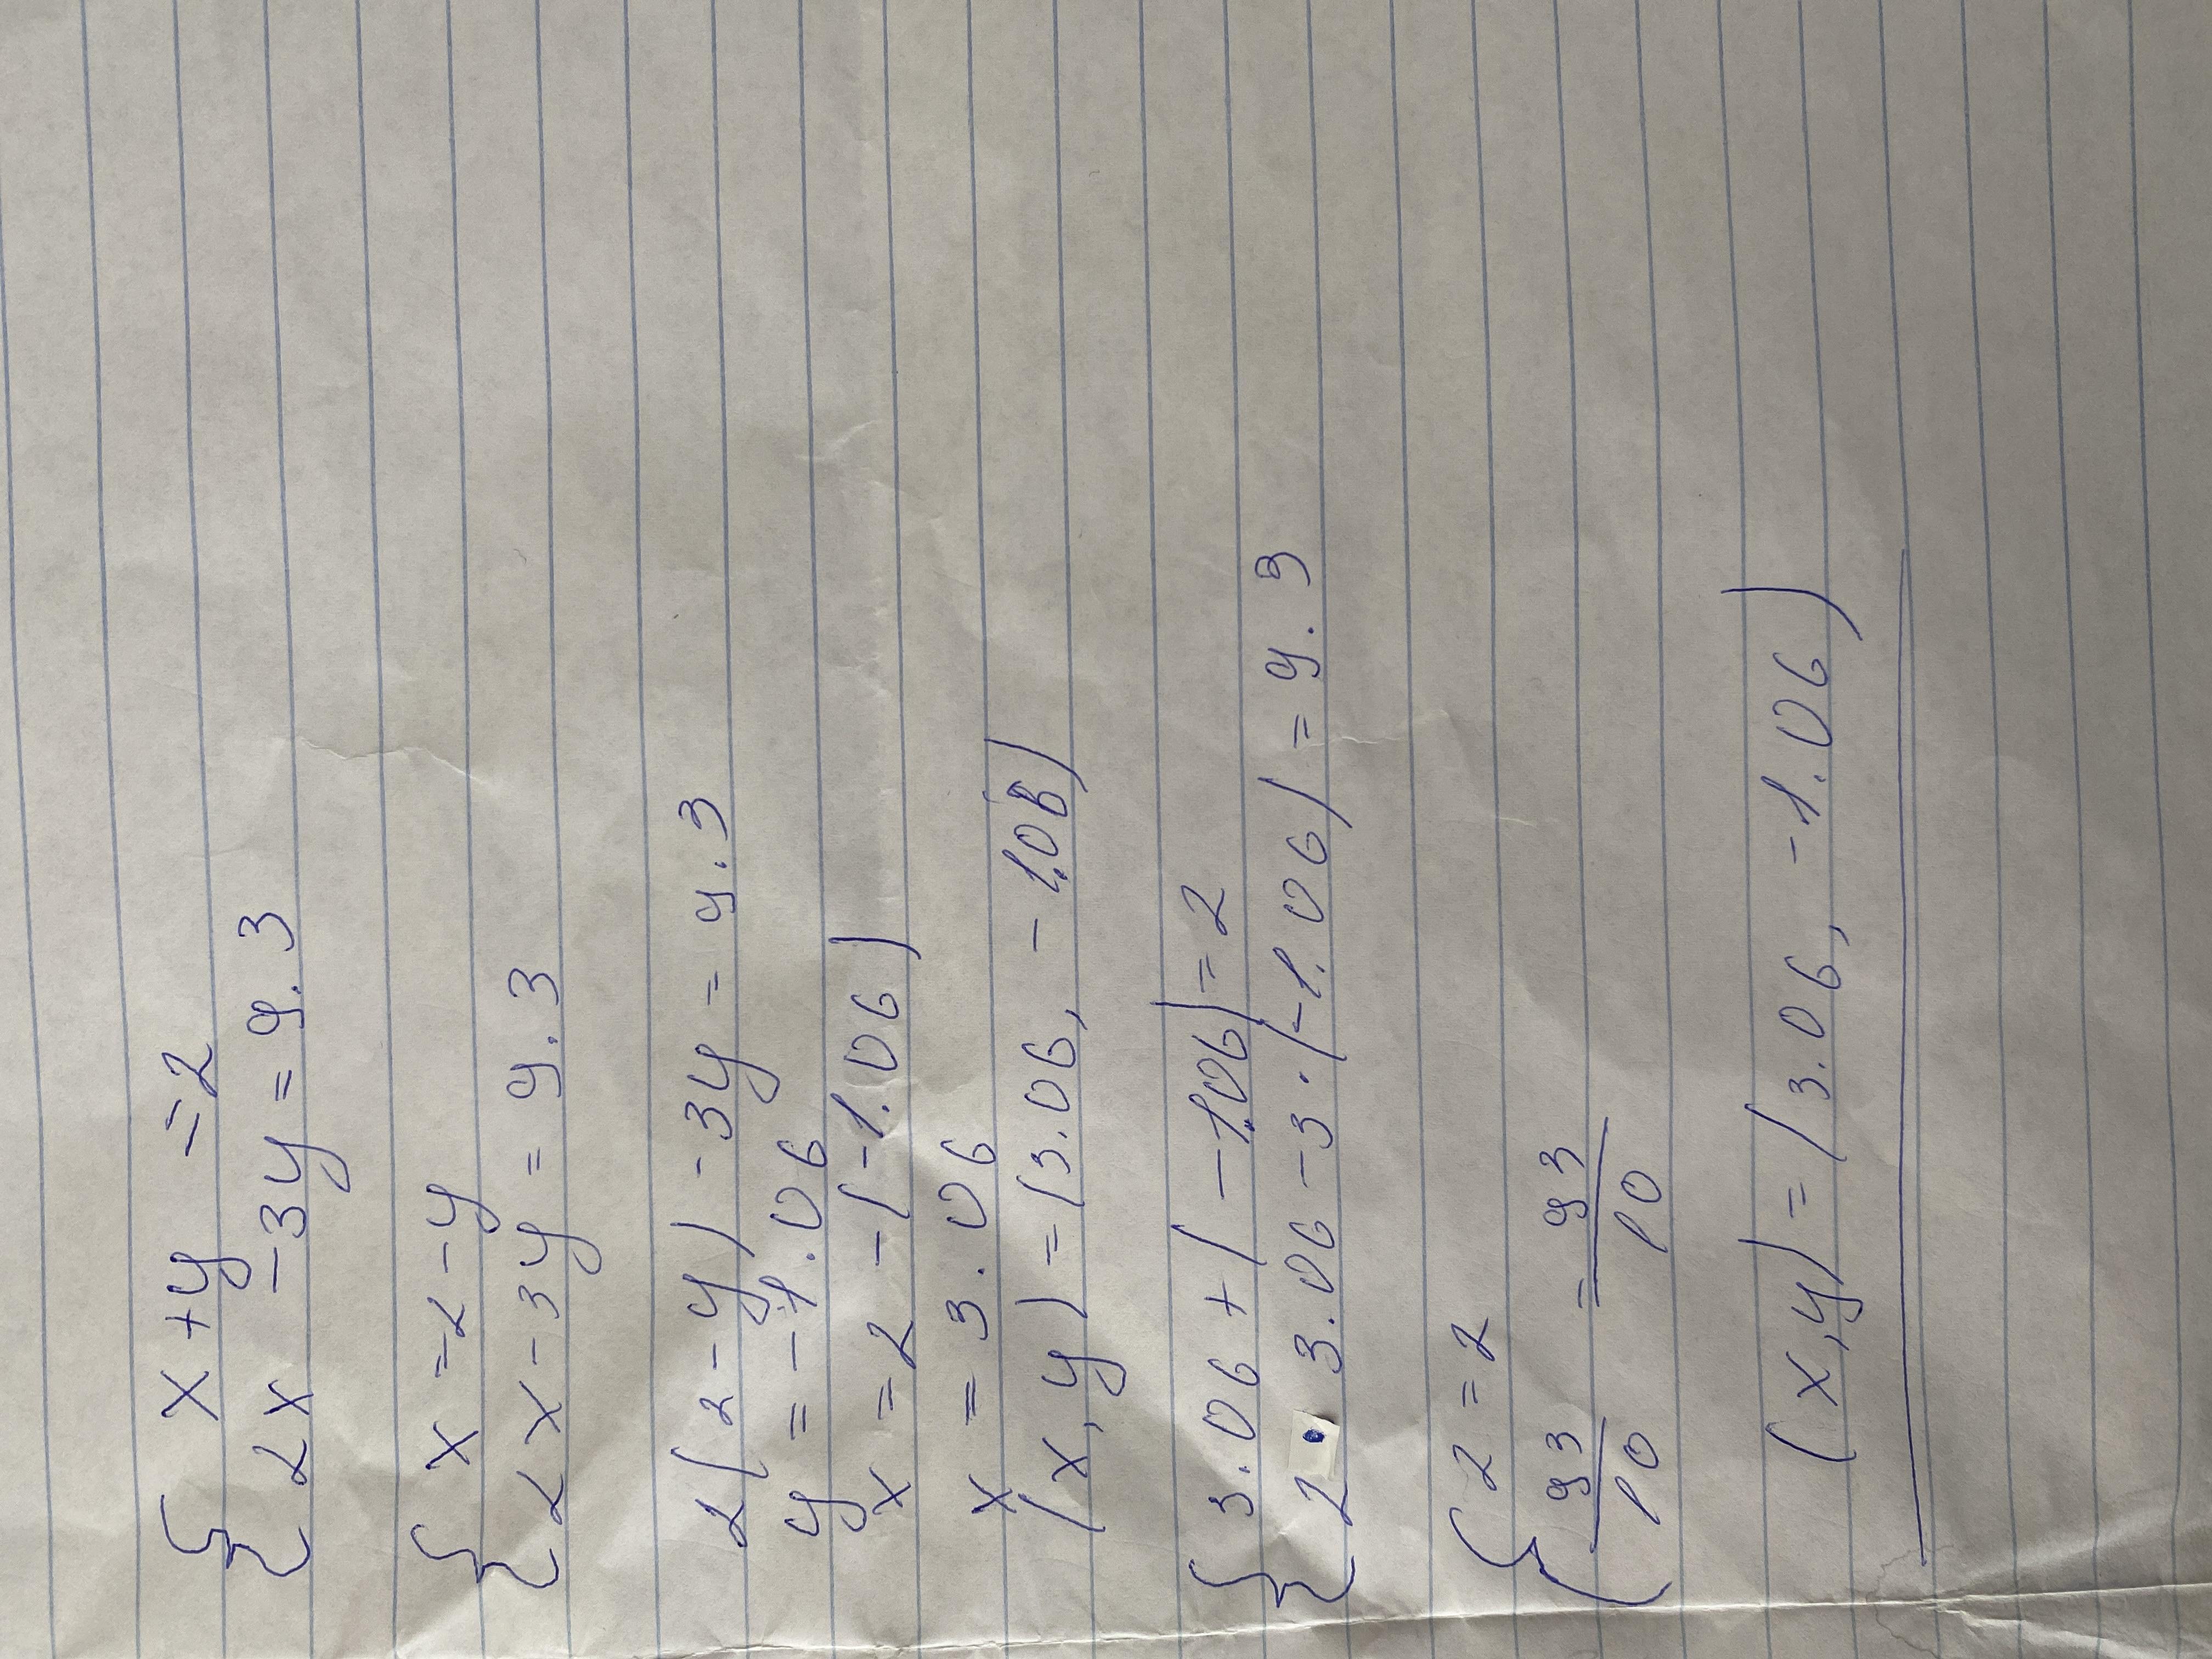 { x + y = 2
2x - 3y = 9.3
{ x = 2 - y
2x - 3y = 9.3
2(2 - y) - 3y = 9.3
y = -1.06
x = 2 - (-1.06)
x = 3.06
(x, y) = (3.06, -1.06)
{ 3.06 + (-1.06) = 2
2 · 3.06 - 3 · (-1.06) = 9.3
{ 2 = 2
93/10 = 93/10
(x, y) = (3.06, -1.06)